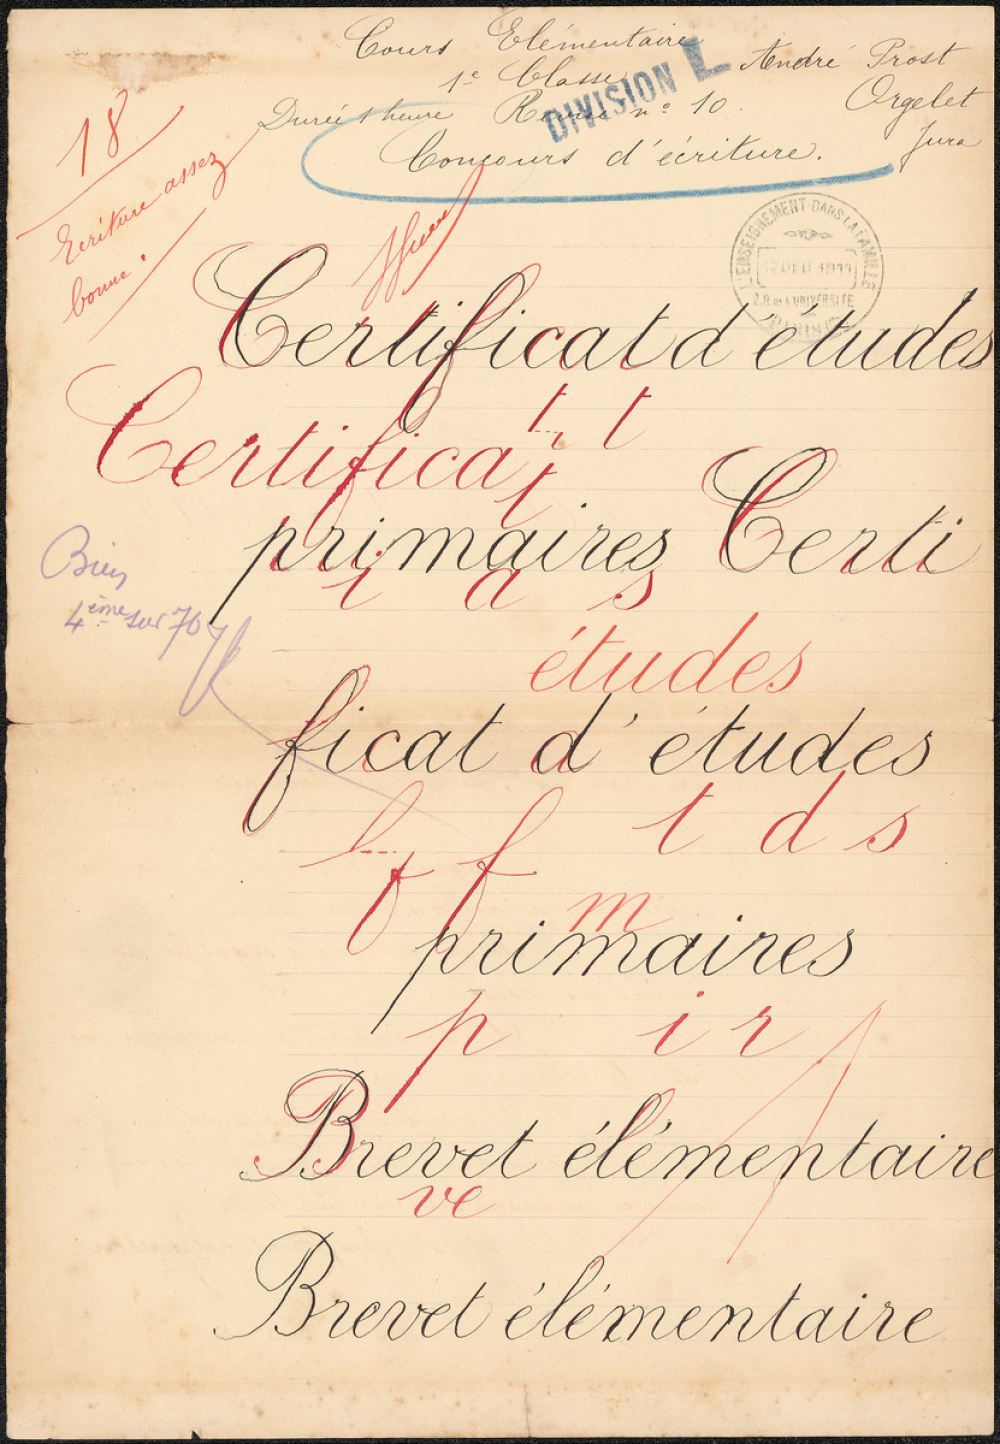 Cours Elémentaire
1e Classe
Durée 1 heure Revue n° 10.
Concours d'écriture.
André Prost
Orgelet
Jura
DIVISION L
18
Ecriture assez
bonne!
L'ENSEIGNEMENT DANS LA FAMILLE
12 DEC 1911
2.R DE L'UNIVERSITÉ
PARIS
Certificat d'études
t t
Certificat
primaires Certi
i a s
Bien
4ème sur 70
études
ficat d'études
t d s
f f
m
primaires
p i r
Brevet élémentaire
ve
Brevet élémentaire